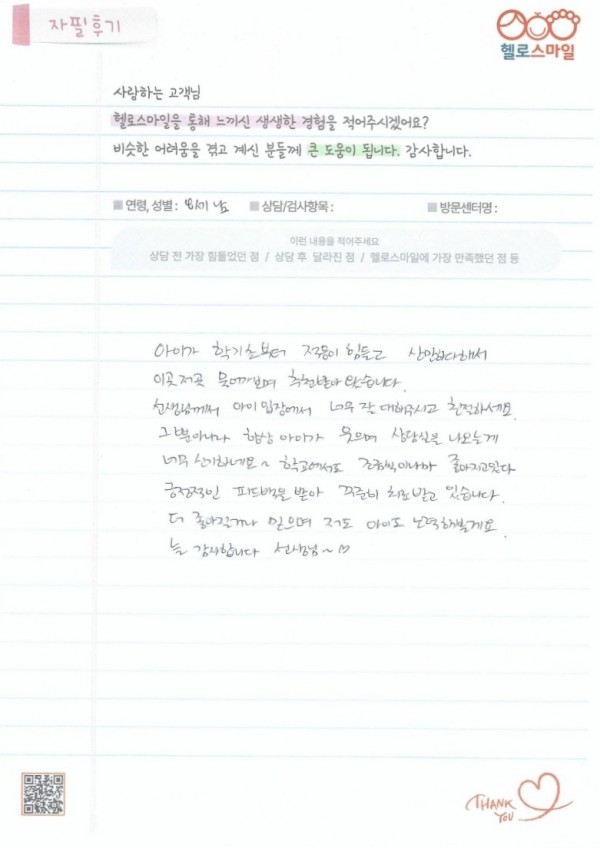 자필후기
헬로스마일
사랑하는 고객님
헬로스마일을 통해 느끼신 생생한 경험을 적어주시겠어요?
비슷한 어려움을 겪고 계신 분들께 큰 도움이 됩니다. 감사합니다.
연령, 성별 : 8세 남 상담/검사항목 : 방문센터명 :
이런 내용을 적어주세요
상담 전 가장 힘들었던 점 / 상담 후 달라진 점 / 헬로스마일에 가장 만족했던 점 등
아이가 학기초부터 적응이 힘들고 산만하다해서
이곳저곳 물어가보며 추천받아 왔습니다.
선생님께서 아이 입장에서 너무 잘 대해주시고 친절하세요.
그뿐아니라 항상 아이가 웃으며 상담실을 나오는게
너무 신기하네요~ 학교에서도 조금씩이나마 좋아지고있다
긍정적인 피드백을 받아 꾸준히 치료받고 있습니다.
더 좋아질거라 믿으며 저도 아이도 노력해볼게요.
늘 감사합니다 선생님~♡
THANK YOU